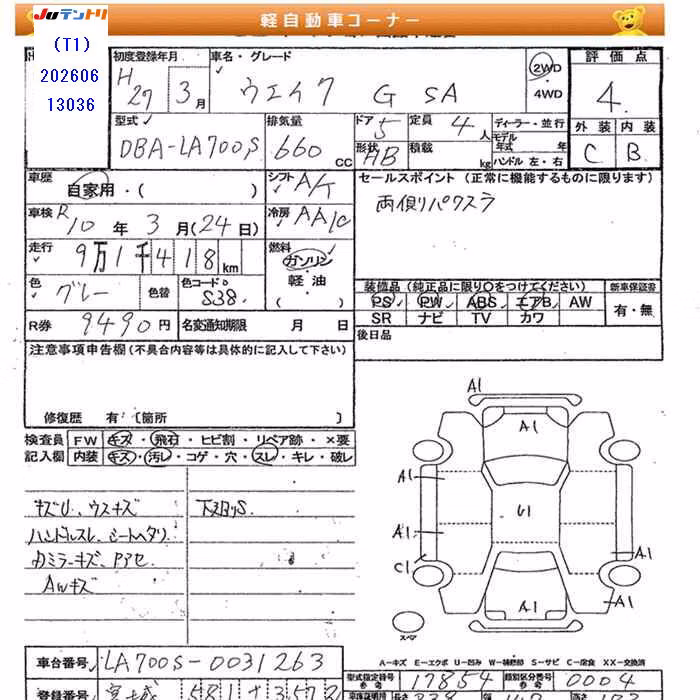 JUテントリ
軽自動車コーナー
(T1)
202606
13036
初度登録年月
車名・グレード
評価点
H27 3月
ウエイク G SA
2WD
・
4WD
4
型式
排気量
ドア 5
定員 4人
ディーラー・並行
外装 内装
DBA-LA700S
660 CC
形状 HB
積載 kg
モデル年式 年
ハンドル 左・右
C B
車歴
自家用・( )
シフト A/T
セールスポイント(正常に機能するものに限ります)
両側パワスラ
車検 R10年3月(24日)
冷房 AAC
走行 9万1千418km
燃料 ガソリン・軽油・( )
色 グレー 色替
色コードNo S38
装備品(純正品に限り○をつけてください)
新車保証書
PS PW ABS エアB AW
有・無
SR ナビ TV カワ
R券 9490円
名変通知期限 月 日
後日品
注意事項申告欄(不具合内容等は具体的に記入して下さい)
修復歴 有〔箇所 〕
検査員 FW キズ・飛石・ヒビ割・リペア跡・×要
記入欄 内装 キズ・汚レ・コゲ・穴・スレ・キレ・破レ
キズU、ウスキズ
下廻りS
ハンドルスレ、シートヘタリ
Dミラーキズ、Pアセ
AWキズ
A1
A1
A1
U1
A1
A1
C1
A1
A1
スペア
A-キズ E-エクボ U-凹み W-補修跡 S-サビ C-腐食 XX-交換済
車台番号 LA700S-0031263
型式指定番号 17854
類別区分番号 0004
登録番号 宮城 581